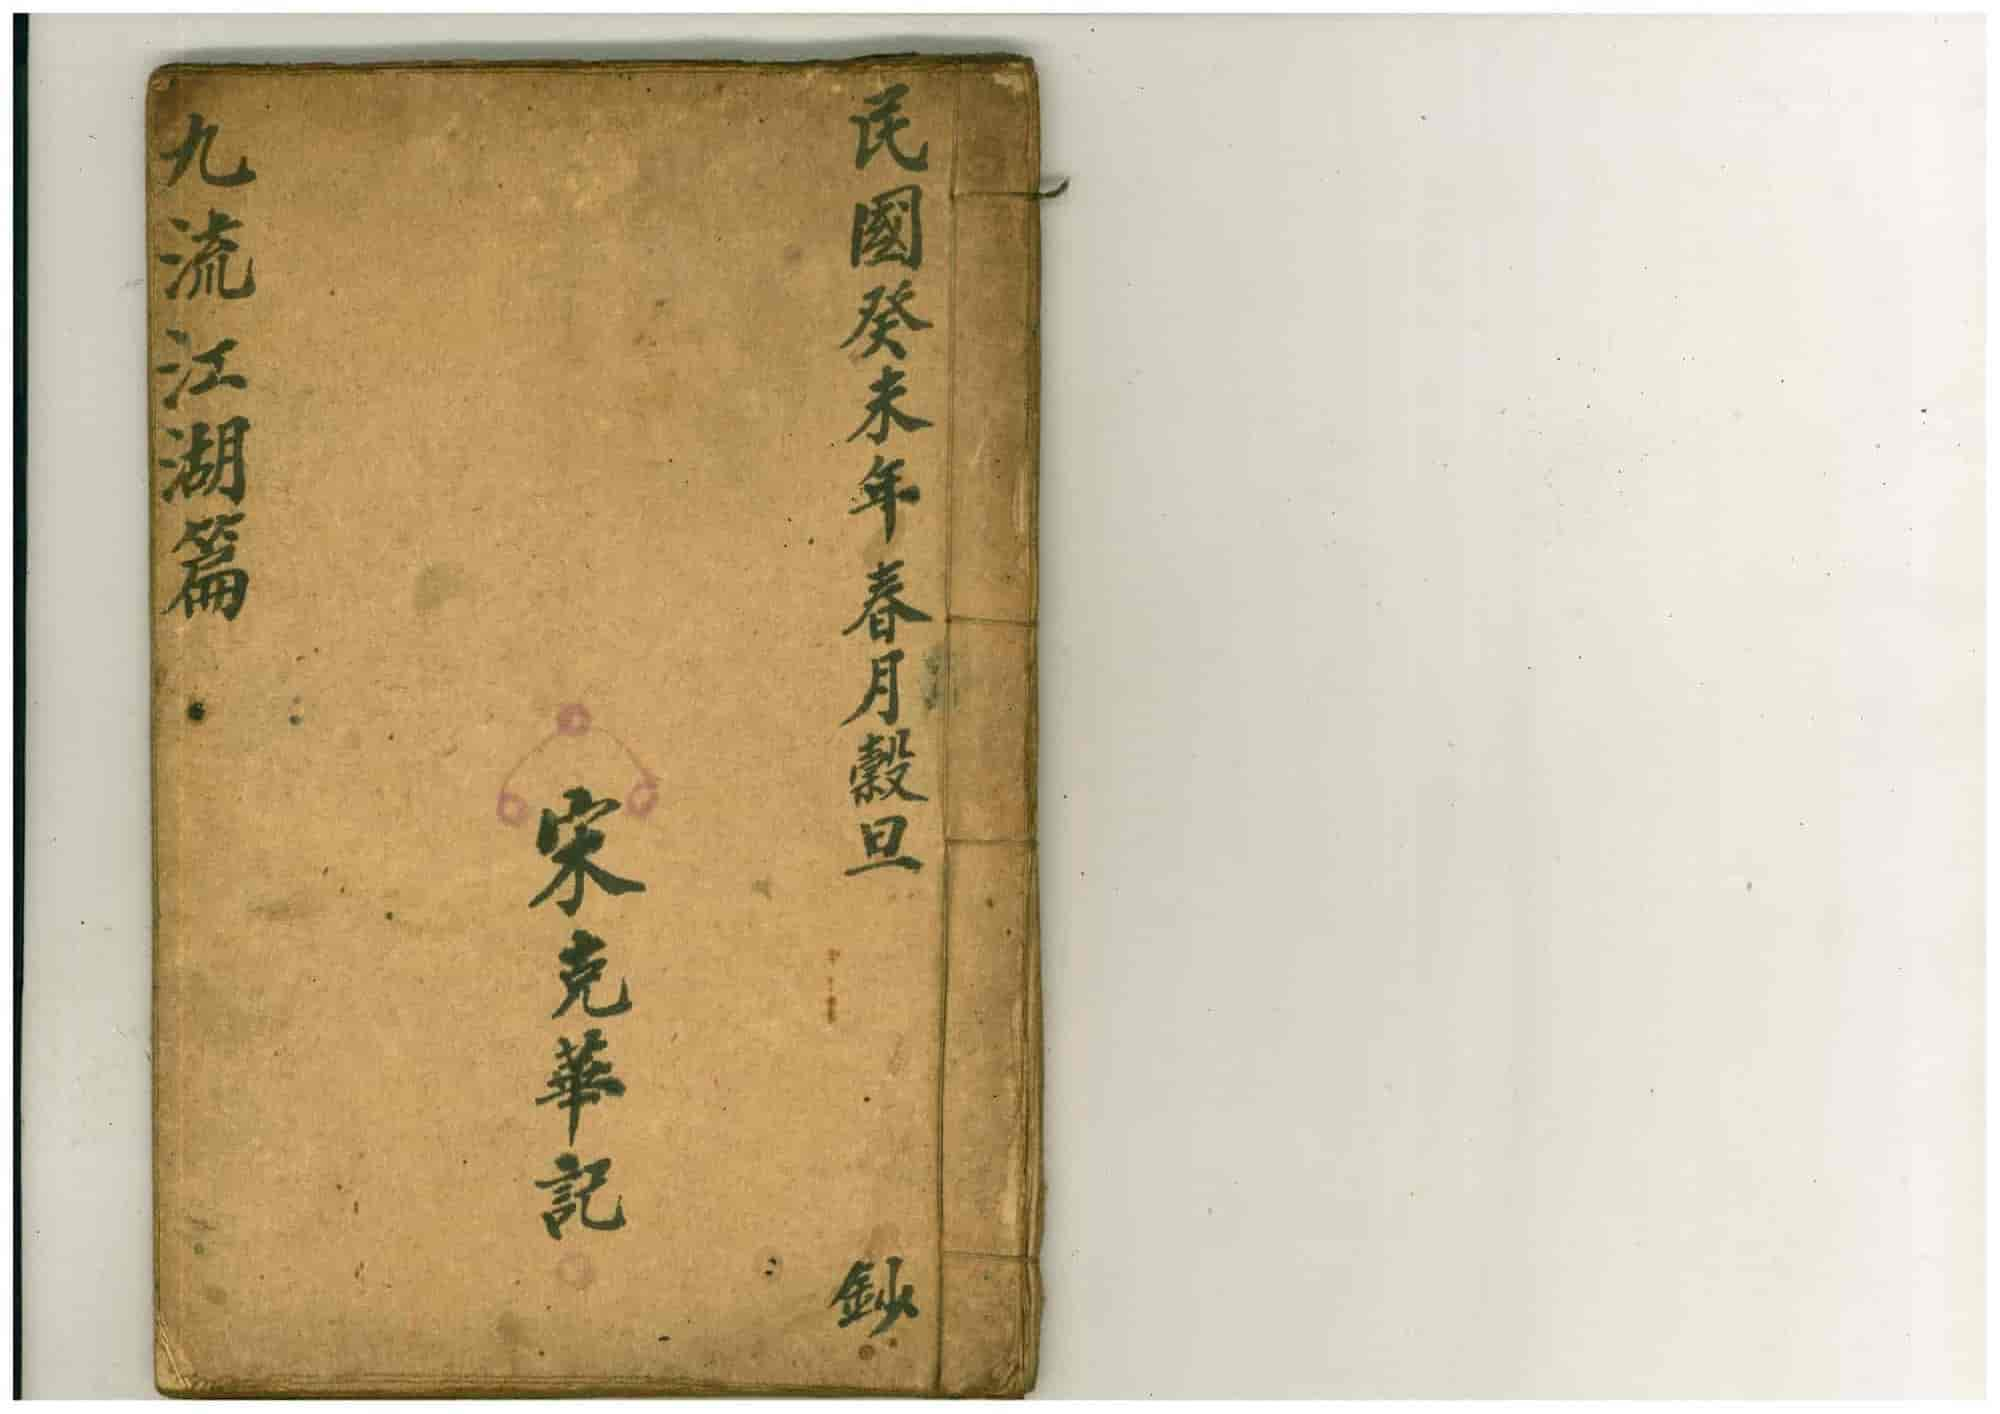 民國癸未年春月穀旦
鈔
宋克華記
九流江湖篇